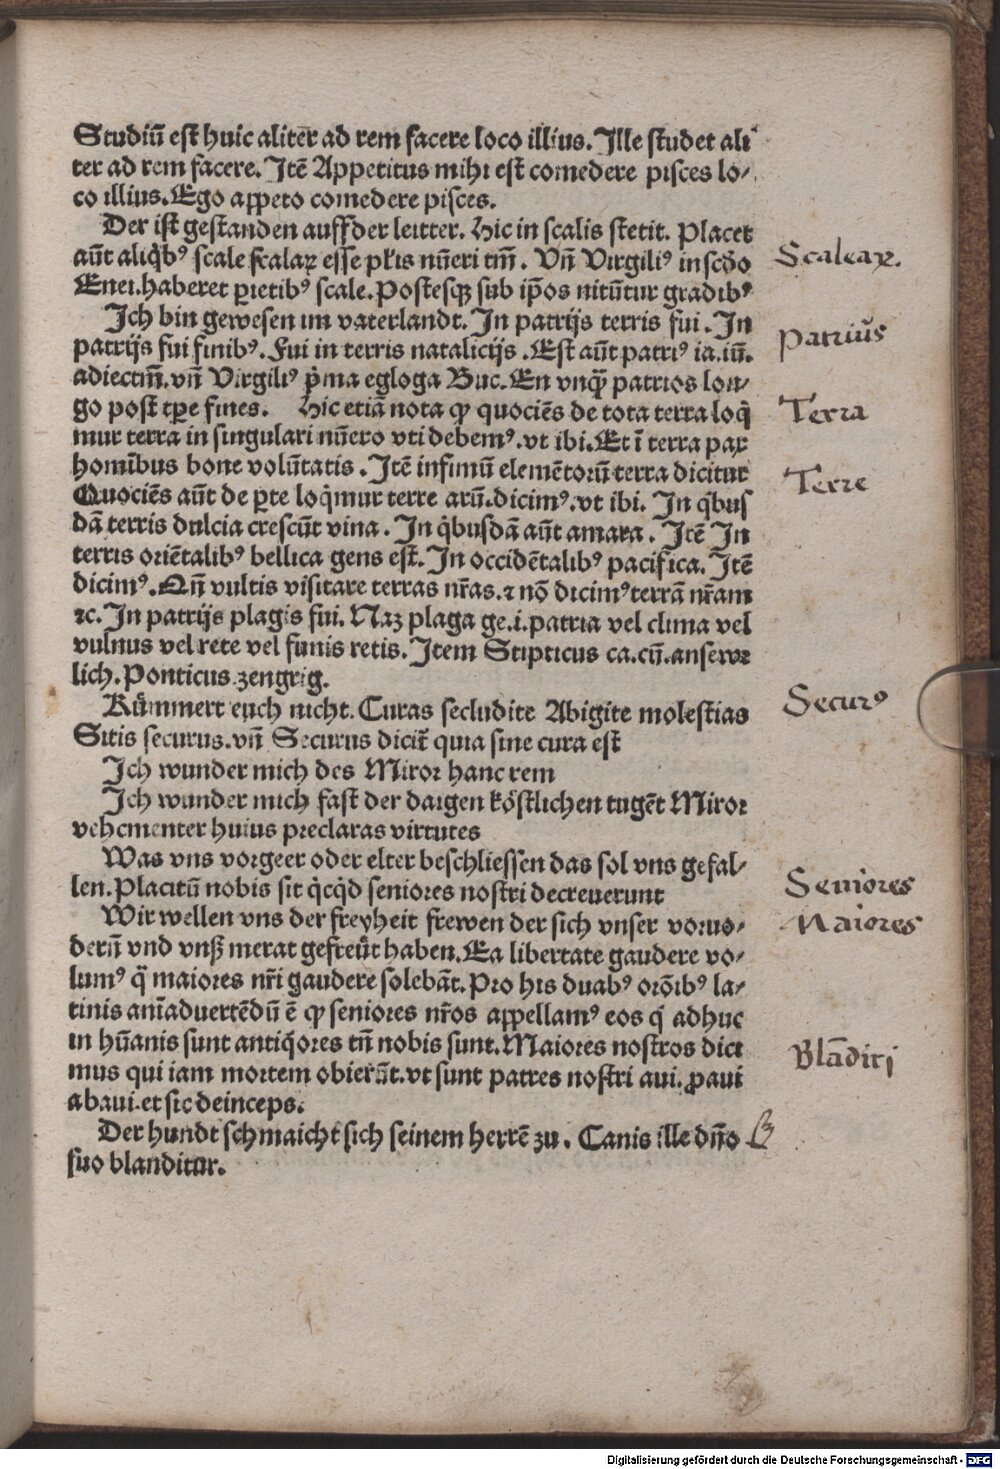 Studiū est huic aliter ad rem facere loco illius. Ille studet ali
ter ad rem facere. Itē Appetitus mihi est comedere pisces lo⸗
co illius. Ego appeto comedere pisces.
Der ist gestanden auff der leitter. Hic in scalis stetit. Placet
aūt aliqͥbꝰ scale scalaꝝ esse plīs nūeri tm̄. Vn̄ Virgiliꝰ in scd̄o
Enei. haberet ꝑietibꝰ scale. Postesqꝫ sub ip̄os nitūtur gradibꝰ
Ich bin gewesen im vaterlandt. In patrijs terris fui. In
patrijs fui finibꝰ. Fui in terris natalicijs. Est aūt patriꝰ ia. iū.
adiectm̄. vn̄ Virgiliꝰ pͥma egloga Buc. En vnqͣꝫ patrios lon⸗
go post tꝑe fines. Hic etiā nota ꝙ quociēs de tota terra loqͥ
mur terra in singulari nūero vti debemꝰ. vt ibi. Et ī terra pax
homībus bone volūtatis. Itē infimū elemētorū terra dicitur
Quociēs aūt de ꝑte loqͥmur terre arū. dicimꝰ. vt ibi. In qͥbus
dā terris dulcia crescūt vina. In qͥbusdā aūt amara. Itē In
terris oriētalibꝰ bellica gens est. In occidētalibꝰ pacifica. Itē
dicimꝰ. Qn̄ vultis visitare terras nr̄as. ⁊ nō dicimꝰ terrā nr̄am
⁊c. In patrijs plagis fui. Naꝫ plaga ge. i. patria vel clima vel
vulnus vel rete vel funis retis. Item Stipticus ca. cū. anseror
lich. Ponticus. zengrig.
Kümmert euch nicht. Curas secludite Abigite molestias
Sitis securus. vn̄ Securus dicit̄ quia sine cura est
Ich wunder mich des Miror hanc rem
Ich wunder mich fast der daigen köstlichen tugēt Miror
vehementer huius preclaras virtutes
Was vns vorgeer oder elter beschliessen das sol vns gefal⸗
len. Placitū nobis sit qͥcqͥd seniores nostri decreuerunt
Wir wellen vns der freyheit frewen der sich vnser voruo⸗
derū vnd vnß merat gefreüt haben. Ea libertate gaudere vo⸗
lumꝰ qͣ maiores nr̄i gaudere solebāt. Pro his duabꝰ orōibꝰ la⸗
tinis aīaduertēdū ē ꝙ seniores nr̄os appellamꝰ eos qͥ adhuc
in hūanis sunt antiqͥores tn̄ nobis sunt. Maiores nostros dici
mus qui iam mortem obierūt. vt sunt patres nostri aui. ꝓaui
abaui. et sic deinceps.
Der hundt schmaicht sich seinem herrē zu. Canis ille dn̄o
suo blanditur.
Scaleaꝝ.
Patriūs
Terra
Terre
Securꝰ
Seniores
Maiores
Blādiri
Digitalisierung gefördert durch die Deutsche Forschungsgemeinschaft - DFG